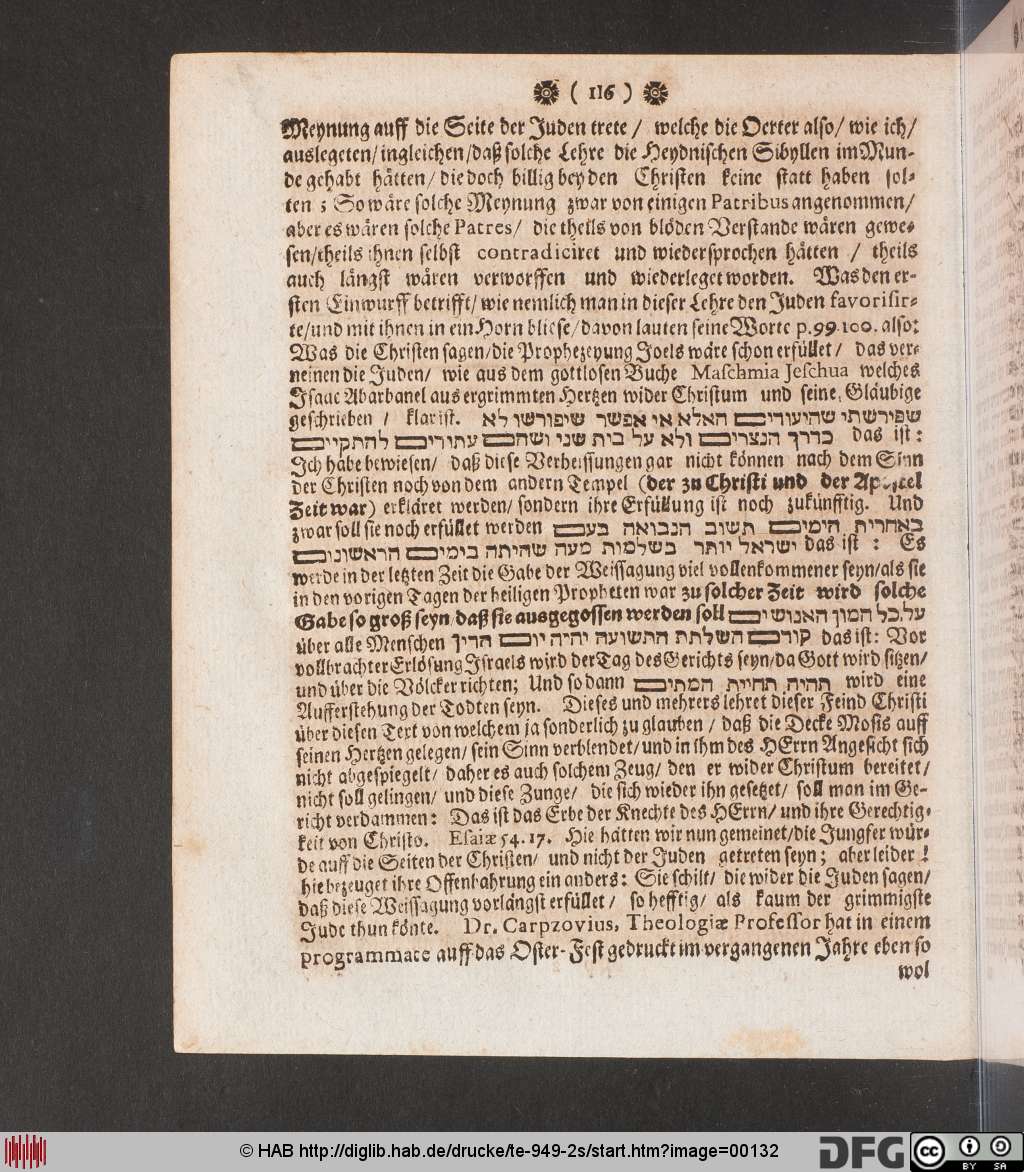 ( 116 )
Meynung auff die Seite der Juden trete / welche die Oerter also/ wie ich/
auslegeten/ ingleichen/ daß solche Lehre die Heydnischen Sibyllen im Mun-
de gehabt hätten/ die doch billig bey den Christen keine statt haben sol-
ten; So wäre solche Meynung zwar von einigen Patribus angenommen/
aber es wären solche Patres/ die theils von blöden Verstande wären gewe-
sen/ theils ihnen selbst contradiciret und wiedersprochen hätten / theils
auch längst wären verworffen und wiederleget worden. Was den er-
sten Einwurff betrifft/ wie nemlich man in dieser Lehre den Juden favorisir-
te/ und mit ihnen in ein Horn bliese/ davon lauten seine Worte p. 99. 100. also:
Was die Christen sagen/ die Prophezeyung Joels wäre schon erfüllet/ das ver-
neinen die Juden/ wie aus dem gottlosen Buche Maschmia Jeschua welches
Isaac Abarbanel aus ergrimmten Hertzen wider Christum und seine Gläubige
geschrieben / klar ist. שפירשתי שהיעודים האלא אי אפשר שיפורשו לא
כדרך הנצרים ולא על בית שני ושהם עתורים להתקיים das ist:
Ich habe bewiesen/ daß diese Verheissungen gar nicht können nach dem Sinn
der Christen noch von dem andern Tempel (der zu Christi und der Apostel
Zeit war) erkläret werden/ sondern ihre Erfüllung ist noch zukünfftig. Und
zwar soll sie noch erfüllet werden באחרית הימים תשוב הנבואה בעם
ישראל יותר בשלמות מעה שהיתה בימים הראשונים das ist : Es
werde in der letzten Zeit die Gabe der Weissagung viel vollenkommener seyn/ als sie
in den vorigen Tagen der heiligen Propheten war zu solcher Zeit wird solche
Gabe so groß seyn/ daß sie ausgegossen werden soll על כל המון האנושים
über alle Menschen קורם השלתת התשועה יהיה יום הדין das ist: Vor
vollbrachter Erlösung Israels wird der Tag des Gerichts seyn/ da Gott wird sitzen/
und über die Völcker richten; Und so dann תהיה תחיית המתים wird eine
Aufferstehung der Todten seyn. Dieses und mehrers lehret dieser Feind Christi
über diesen Text von welchem ja sonderlich zu glauben / daß die Decke Mosis auff
seinen Hertzen gelegen/ sein Sinn verblendet/ und in ihm des HErrn Angesicht sich
nicht abgespiegelt/ daher es auch solchem Zeug/ den er wider Christum bereitet/
nicht soll gelingen/ und diese Zunge/ die sich wieder ihn gesetzet/ soll man im Ge-
richt verdammen: Das ist das Erbe der Knechte des HErrn/ und ihre Gerechtig-
keit von Christo. Esaiæ 54. 17. Hie hätten wir nun gemeinet/ die Jungfer wür-
de auff die Seiten der Christen/ und nicht der Juden getreten seyn; aber leider!
hie bezeuget ihre Offenbahrung ein anders: Sie schilt/ die wider die Juden sagen/
daß diese Weissagung vorlängst erfüllet/ so hefftig/ als kaum der grimmigste
Jude thun könte. Dr. Carpzovius, Theologiæ Professor hat in einem
programmate auff das Oster-Fest gedruckt im vergangenen Jahre eben so
wol
© HAB http://diglib.hab.de/drucke/te-949-2s/start.htm?image=00132
DFG
cc BY SA